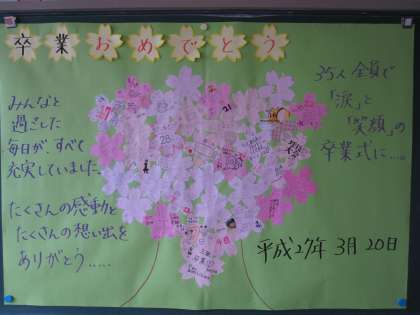 卒業おめでとう
みんなと
過ごした
毎日が、すべて
充実していました。
たくさんの感動と
たくさんの想い出を
ありがとう.....
35人全員で
「涙」と
「笑顔」の
卒業式に....
平成27年 3月20日
28
21